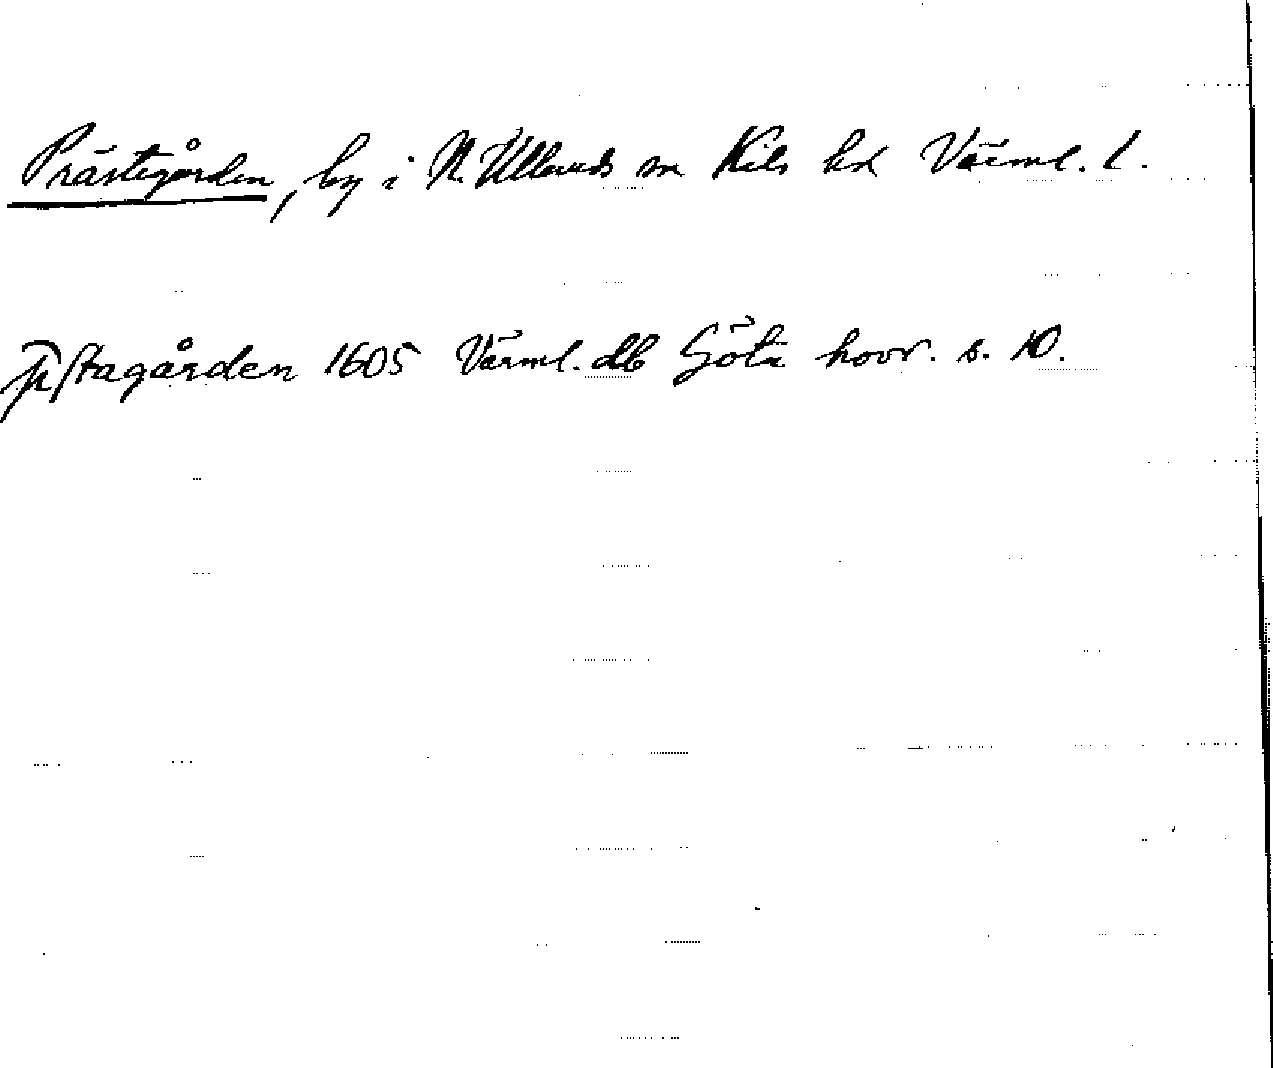 Prästegården, by i N. Ulleruds sn Kils hd Värml. l.
p̄stagården 1605 Värml. db Göta hovr. s. 10.